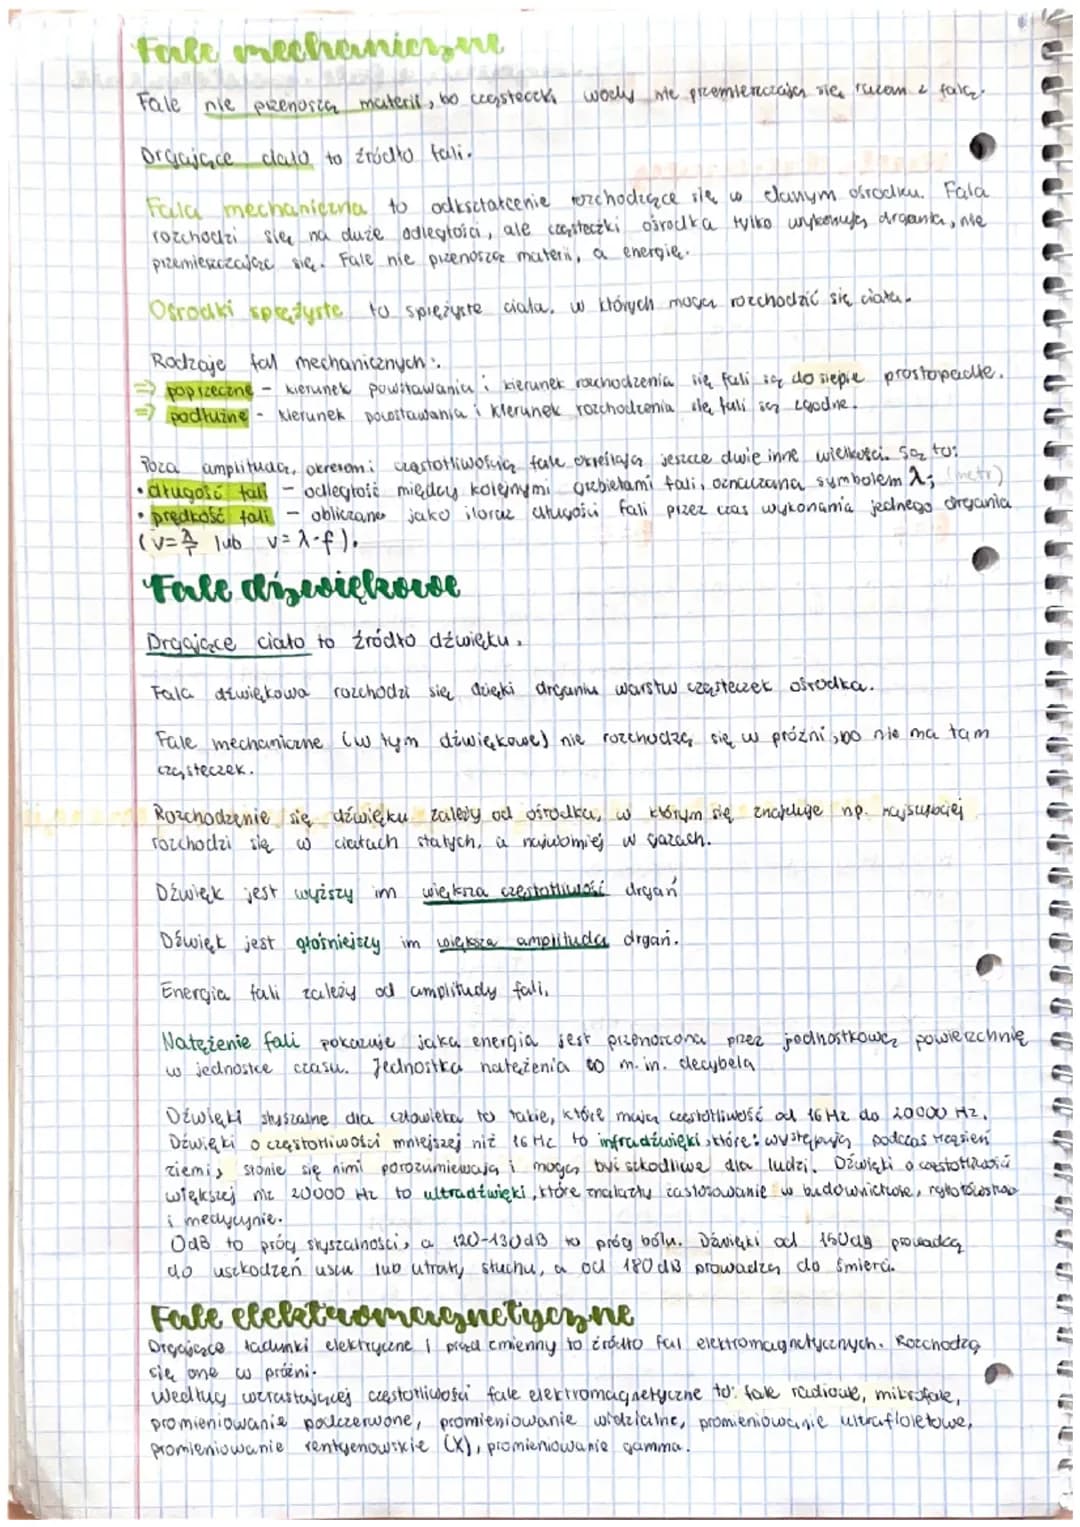 Fale mechaniczne
Fale nie przenoszą materii, bo cząsteczki wody nie przemieszczają się razem z falą.
Drgające ciało to źródło fali.
Fala mechaniczna to odkształcenie rozchodzące się w danym ośrodku. Fala
rozchodzi się na duże odległości, ale cząsteczki ośrodka tylko wykonują drgania, nie
przemieszczając się. Fale nie przenoszą materii, a energię.
Ośrodki sprężyste to sprężyste ciała, w których mogą rozchodzić się ciała.
Rodzaje fal mechanicznych:
⇒ poprzeczne - kierunek powstawania i kierunek rozchodzenia się fali są do siepie prostopadłe.
⇒ podłużne - kierunek powstawania i kierunek rozchodzenia się fali są zgodne.
Poza amplitudą, okresem i częstotliwością fale określają jeszcze dwie inne wielkości. Są to:
• długość fali - odległość między kolejnymi grzbietami fali, oznaczana symbolem λ; (metr)
• prędkość fali - obliczane jako iloraz długości fali przez czas wykonania jednego drgania
(v=λ/T lub v=λ·f).
Fale dźwiękowe
Drgające ciało to źródło dźwięku.
Fala dźwiękowa rozchodzi się dzięki drganiu warstw cząsteczek ośrodka.
Fale mechaniczne (w tym dźwiękowe) nie rozchodzą się w próżni, bo nie ma tam
cząsteczek.
Rozchodzenie się dźwięku zależy od ośrodka, w którym się znajduje np. najszybciej
rozchodzi się w ciałach stałych, a najwolniej w gazach.
Dźwięk jest wyższy im większa częstotliwość drgań
Dźwięk jest głośniejszy im większa amplituda drgań.
Energia fali zależy od amplitudy fali.
Natężenie fali pokazuje jaka energia jest przenoszona przez jednostkową powierzchnię
w jednostce czasu. Jednostka natężenia to m.in. decybela
Dźwięki słyszalne dla człowieka to takie, które mają częstotliwość od 16 Hz do 20000 Hz.
Dźwięki o częstotliwości mniejszej niż 16 Hz to infradźwięki, które: występują podczas trzęsień
ziemi, słonie się nimi porozumiewają i mogą być szkodliwe dla ludzi. Dźwięki o częstotliwości
większej niż 20000 Hz to ultradźwięki, które znalazły zastosowanie w budownictwie, rybołówstwie
i medycynie.
0dB to próg słyszalności, a 120-130dB to próg bólu. Dźwięki od 150dB prowadzą
do uszkodzeń uszu lub utraty słuchu, a od 180dB prowadzą do śmierci.
Fale elektromagnetyczne
Drgające ładunki elektryczne i prąd zmienny to źródło fal elektromagnetycznych. Rozchodzą
się one w próżni.
Według wzrastającej częstotliwości fale elektromagnetyczne to: fale radiowe, mikrofale,
promieniowanie podczerwone, promieniowanie widzialne, promieniowanie ultrafioletowe,
promieniowanie rentgenowskie (X), promieniowanie gamma.